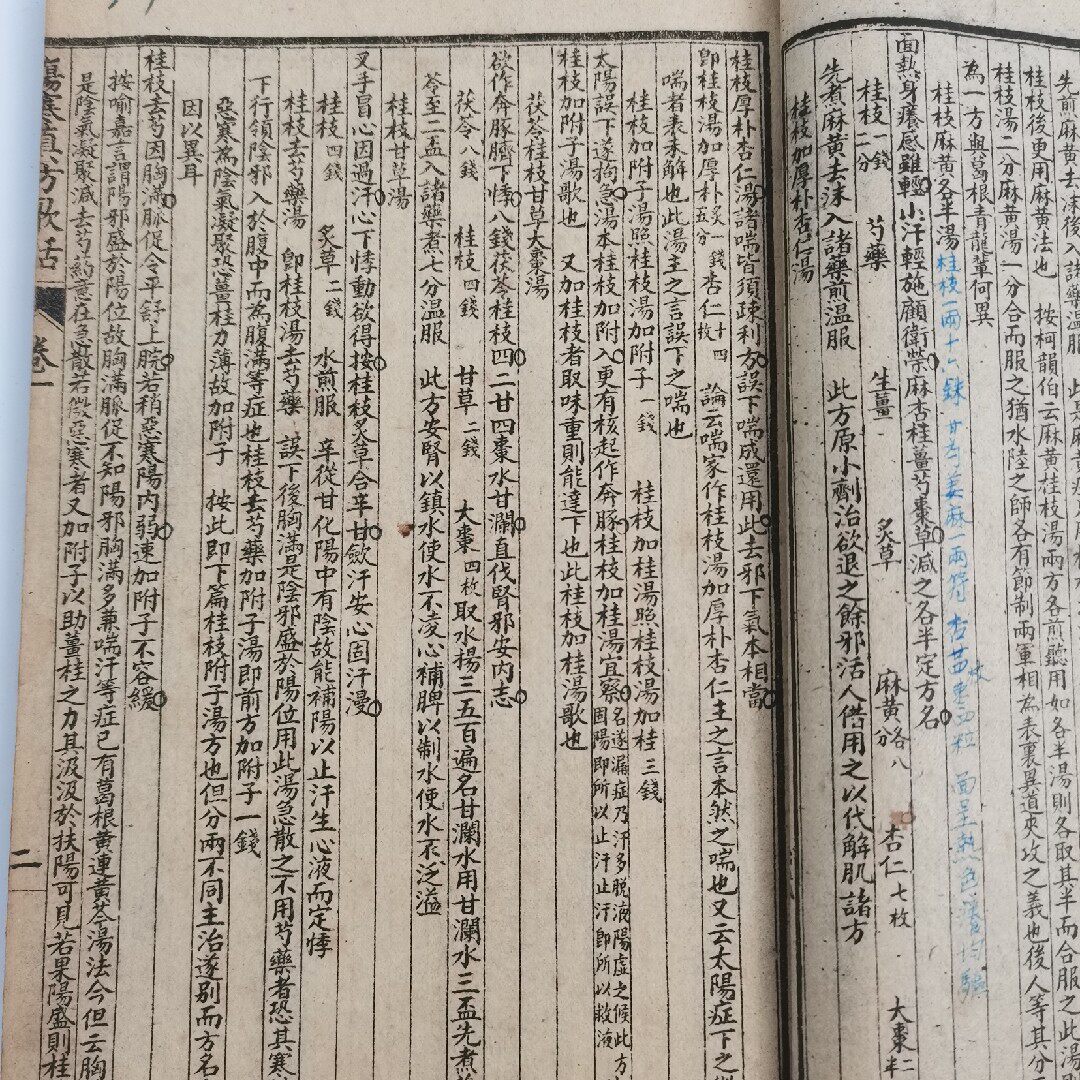 先前麻黃去沫後入諸藥溫
桂枝後更用麻黃法也　按柯韻伯云麻黃桂枝湯兩方各煎聽用如各半湯則各取其半而合服之此湯
桂枝湯二分麻黃湯一分合而服之猶水陸之師各有節制兩軍相為表裏異道夾攻之義也後人等其分
為一方與葛根青龍輩何異
桂枝麻黃各半湯
面熱身癢感雖輕小汗輕施顧衛榮麻杏桂薑芍棗草減之各半定方名
桂枝一錢二分　芍藥　生薑　炙草　麻黃各八分　杏仁七枚　大棗二
先煮麻黃去沫入諸藥煎溫服　此方原小劑治欲退之餘邪活人借用之以代解肌諸方
桂枝加厚朴杏仁湯
桂枝厚朴杏仁湯諸喘皆須疎利方誤下喘成還用此去邪下氣本相當
即桂枝湯加厚朴炙一錢五分杏仁十四枚　論云喘家作桂枝湯加厚朴杏仁主之言本然之喘也又云太陽症下之
喘者表未解也此湯主之言誤下之喘也
桂枝加附子湯照桂枝湯加附子一錢　桂枝加桂湯照桂枝湯加桂三錢
太陽誤下遂拘急湯本桂枝加附入更有核起作奔豚桂枝加桂湯宜察名遂漏症乃汗多脫液陽虛之候此方固陽即所以止汗止汗即所以救液
桂枝加附子湯歌也　又加桂枝者取味重則能達下也此桂枝加桂湯歌也
茯苓桂枝甘草大棗湯
欲作奔豚臍下悸八錢茯苓桂枝四二甘四棗水甘瀾直伐腎邪安內志
茯苓八錢　桂枝四錢　甘草二錢　大棗四枚取水揚三五百遍名甘瀾水用甘瀾水三盃先煮
苓至二盃入諸藥煮七分溫服　此方安腎以鎮水使水不凌心補脾以制水使水不泛溢
桂枝甘草湯
叉手冒心因過汗心下悸動欲得按桂枝炙草合辛甘歛汗安心固汗漫
桂枝四錢　炙草二錢　水煎服　辛從甘化陽中有陰故能補陽以止汗生心液而定悸
桂枝去芍藥湯　即桂枝湯去芍藥　誤下後胸滿是陰邪盛於陽位用此湯急散之不用芍藥者恐其寒
下行領陰邪入於腹中而為腹滿等症也桂枝去芍藥加附子湯即前方加附子一錢
惡寒為陰氣凝聚恐薑桂力薄故加附子　按此即下篇桂枝附子湯方也但分兩不同主治遂別而方名
因以異耳
桂枝去芍因胸滿脈促令平舒上脘若稍惡寒陽內弱速加附子不容緩
按喻嘉言謂陽邪盛於陽位故胸滿脈促不知陽邪胸滿多兼喘汗等症已有葛根黃連黃芩湯法今但云胸
是陰氣凝聚減去芍藥意在急散若微惡寒者又加附子以助薑桂之力其汲汲於扶陽可見若果陽盛則桂
傷寒真方歌括
卷一
二